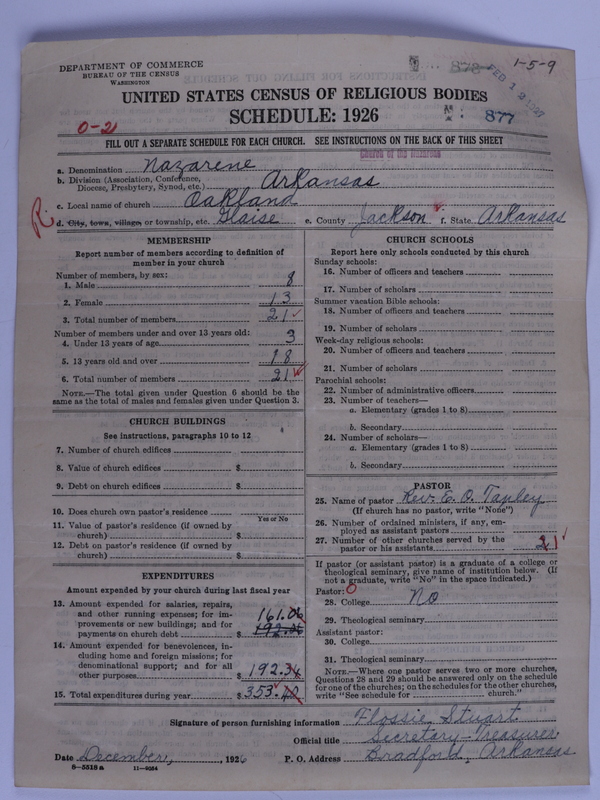 DEPARTMENT OF COMMERCE
BUREAU OF THE CENSUS
WASHINGTON
878
1-5-9
FEB 12 1927
877
UNITED STATES CENSUS OF RELIGIOUS BODIES
SCHEDULE: 1926
0-2
FILL OUT A SEPARATE SCHEDULE FOR EACH CHURCH. SEE INSTRUCTIONS ON THE BACK OF THIS SHEET
Church of the Nazarene
a. Denomination Nazarene
b. Division (Association, Conference, Diocese, Presbytery, Synod, etc.) Arkansas
c. Local name of church Oakland
R. d. City, town, village, or township, etc. Glaise e. County Jackson f. State Arkansas
MEMBERSHIP
Report number of members according to definition of
member in your church
Number of members, by sex:
1. Male 8
2. Female 13
3. Total number of members 21
Number of members under and over 13 years old:
4. Under 13 years of age 3
5. 13 years old and over 18
6. Total number of members 21
NOTE.—The total given under Question 6 should be
same as the total of males and females given under Question 3.
CHURCH BUILDINGS
See instructions, paragraphs 10 to 12
7. Number of church edifices
8. Value of church edifices $
9. Debt on church edifices $
10. Does church own pastor's residence
Yes or No
11. Value of pastor's residence (if owned by
church) $
12. Debt on pastor's residence (if owned by
church) $
EXPENDITURES
Amount expended by your church during last fiscal year
13. Amount expended for salaries, repairs,
and other running expenses; for im-
provements or new buildings; and for 161.06
payments on church debt $ 192.06
14. Amount expended for benevolences, in-
cluding home and foreign missions; for
denominational support; and for all
other purposes $ 192.34
15. Total expenditures during year $ 353.40
CHURCH SCHOOLS
Report here only schools conducted by this church
Sunday schools:
16. Number of officers and teachers
17. Number of scholars
Summer vacation Bible schools:
18. Number of officers and teachers
19. Number of scholars
Week-day religious schools:
20. Number of officers and teachers
21. Number of scholars
Parochial schools:
22. Number of administrative officers
23. Number of teachers—
a. Elementary (grades 1 to 8)
b. Secondary
24. Number of scholars—
a. Elementary (grades 1 to 8)
b. Secondary
PASTOR
25. Name of pastor Rev. E. O. Tapley
(If church has no pastor, write "None")
26. Number of ordained ministers, if any, em-
ployed as assistant pastors
27. Number of other churches served by the
pastor or his assistants
If pastor (or assistant pastor) is a graduate of a college or
theological seminary, give name of institution below. (If
not a graduate, write "No" in the space indicated.)
Pastor: 0
28. College No
29. Theological seminary
Assistant pastor:
30. College
31. Theological seminary
NOTE.—Where one pastor serves two or more churches,
Questions 28 and 29 should be answered only on the schedule
for one of the churches; on the schedules for the other churches,
write "See schedule for church."
Signature of person furnishing information Flossie Stuart
Official title Secretary-Treasurer
Date December, 1926 P. O. Address Bradford, Arkansas
8-5518 a 11-9254